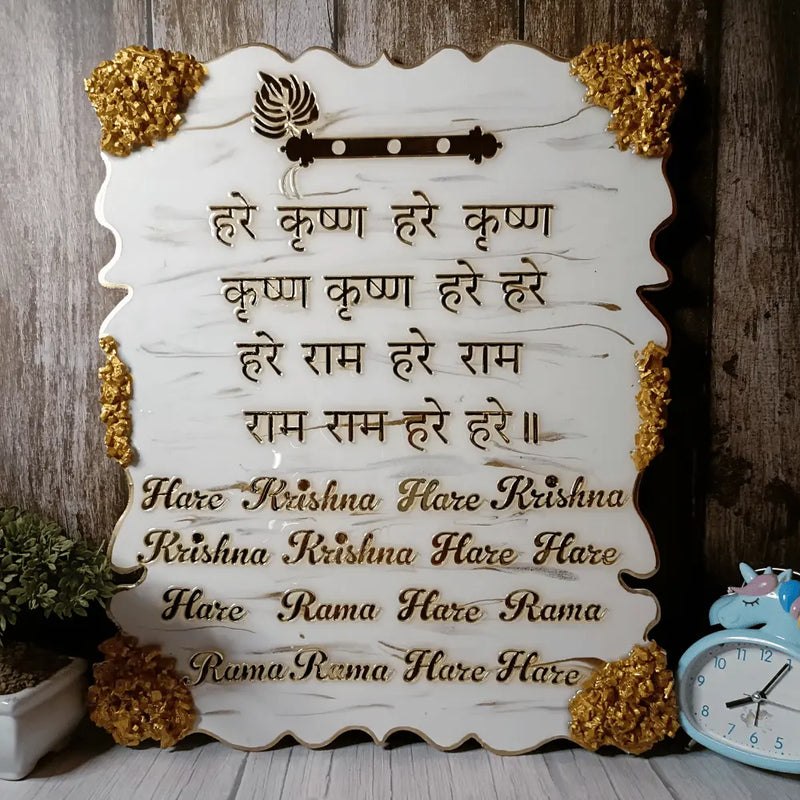 हरे कृष्ण हरे कृष्ण
कृष्ण कृष्ण हरे हरे
हरे राम हरे राम
राम राम हरे हरे॥
Hare Krishna Hare Krishna
Krishna Krishna Hare Hare
Hare Rama Hare Rama
Rama Rama Hare Hare
10 11 12
9
8
7 6 5